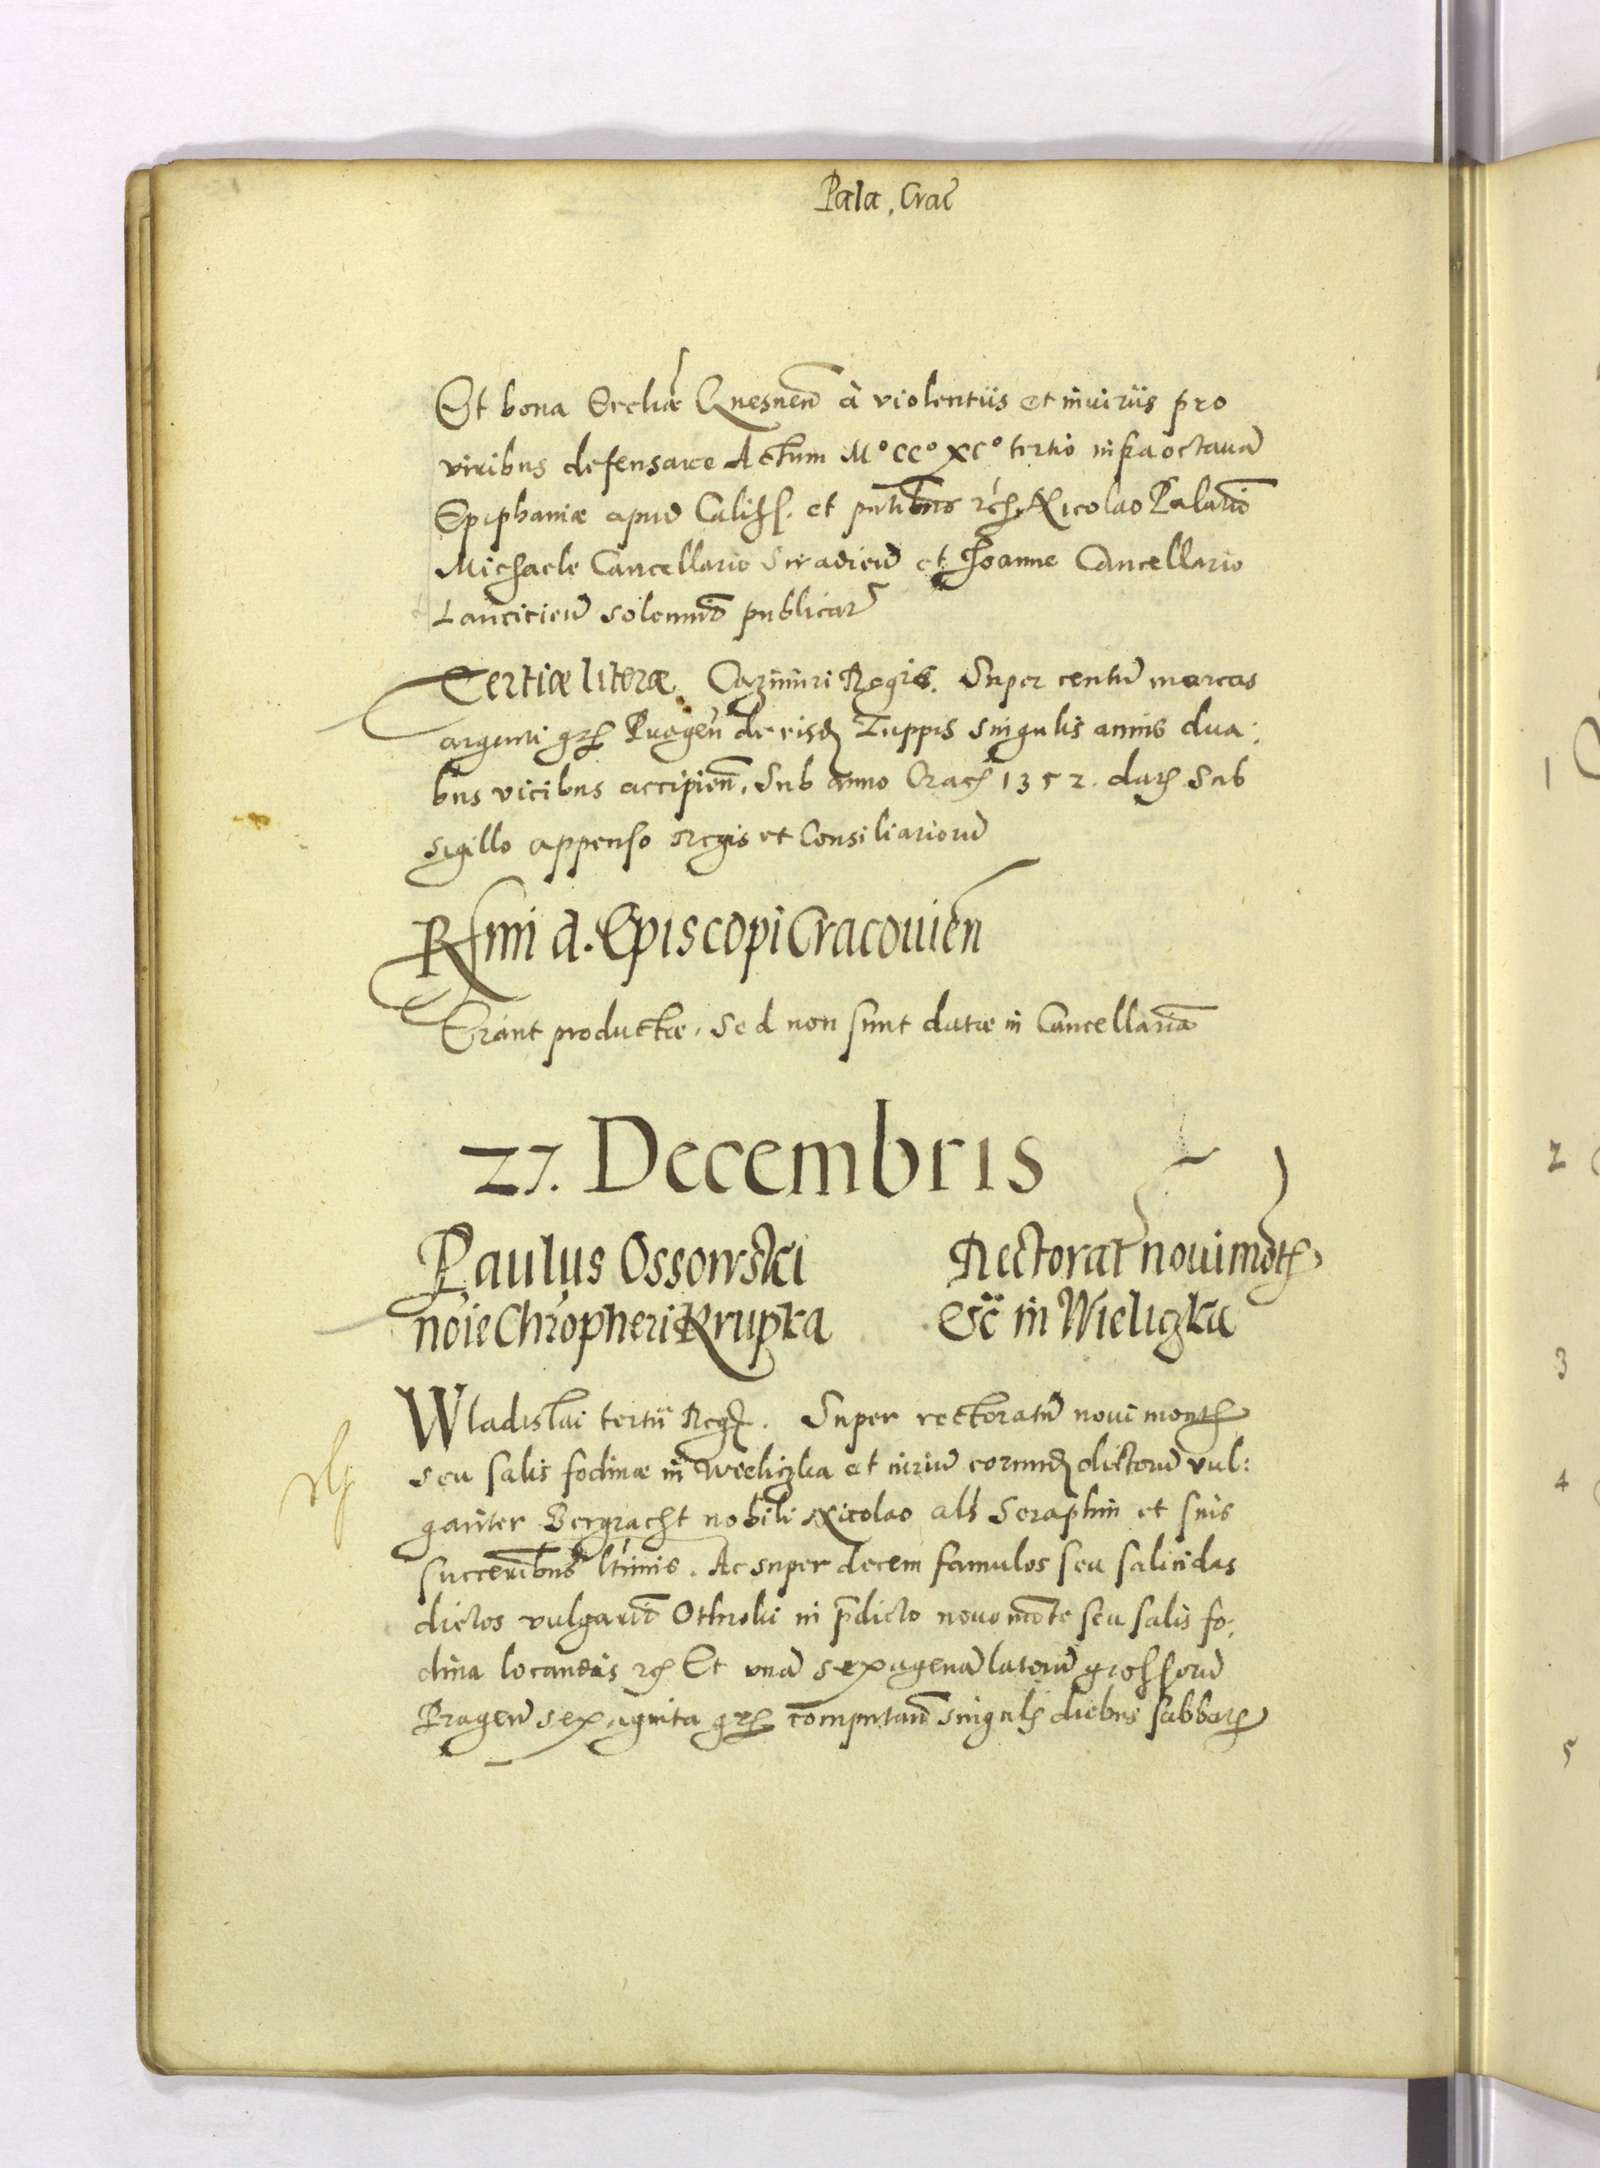 Pala. Crac̃
Et bona Eccliæ Gnesneñ à violentiis et iniuriis pro
viribus defensare Actum M° CC° XC° tertio infra octauã
Epiphaniæ apud Calis. et pñtibus Nicolao Palatiõ
Michaele Cancellario Siradieñ et Joanne Cancellario
Lancicieñ solemnitõ publicat
Tertiæ literæ Cazimiri Regis. Super centũ marcas
argenti gr Prageñ de eisd Zuppis singulis annis dua:
bus vicibus accipieñ. Sub anno Crac 1352. dat Sub
sigillo appenso regis et Consiliariorũ
Rſmi d. Episcopi Cracouieñ
Erant productæ. Sed non sunt datæ in Cancellariã
27. Decembris
Paulus Ossowski
noĩe Chrõpheri Krupka
Rectorat noui mõt
&c̃ in Wieliczka
Wladislai tertii Reg. Super rectoratũ noui mont
seu salis fodinæ in Wieliczka et iuriũ eorund dictorũ vul:
gariter Bergracht nobili Nicolao als Seraphin et suis
succeribus ltimis. Ac super decem famulos seu salicidas
dictos vulgaritõ Othroki in p̃dicto nouo mõte seu salis fo:
dina locandis Et vnã sexagenã latorũ grossorũ
Prageñ sexaginta gr computanð singulis diebus sabbat